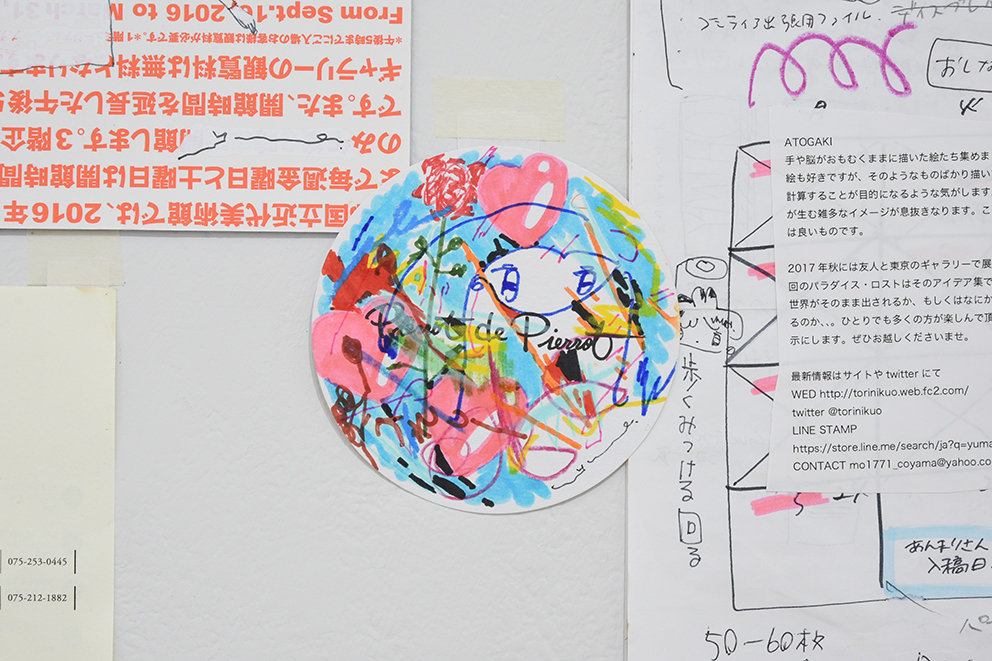 From Sept.16, 2016 to March 31,
*午後5時までにご入場のお客様は観覧料が必要です。*1階
ギャラリーの観覧料は無料となります
です。また、開館時間を延長した午後5
のみ
館します。3階企
まで毎週金曜日と土曜日は開館時間
国立近代美術館では、2016年
de Pierrot
yuma.
075-253-0445
075-212-1882
コミティア出張用ファイル.
おしな
ATOGAKI
手や脳がおもむくままに描いた絵たち集めま
絵も好きですが、そのようなものばかり描い
計算することが目的になるような気がします
が生む雑多なイメージが息抜きなります。こ
は良いものです。
2017年秋には友人と東京のギャラリーで展
回のパラダイス・ロストはそのアイデア集で
世界がそのまま出されるか、もしくはなにか
るのか、、。ひとりでも多くの方が楽しんで頂
示にします。ぜひお越しくださいませ。
最新情報はサイトや twitter にて
WED http://torinikuo.web.fc2.com/
twitter @torinikuo
LINE STAMP
https://store.line.me/search/ja?q=yuma
CONTACT mo1771_coyama@yahoo.co
歩くみつける回る
あんまりさん
入稿日.
50-60枚